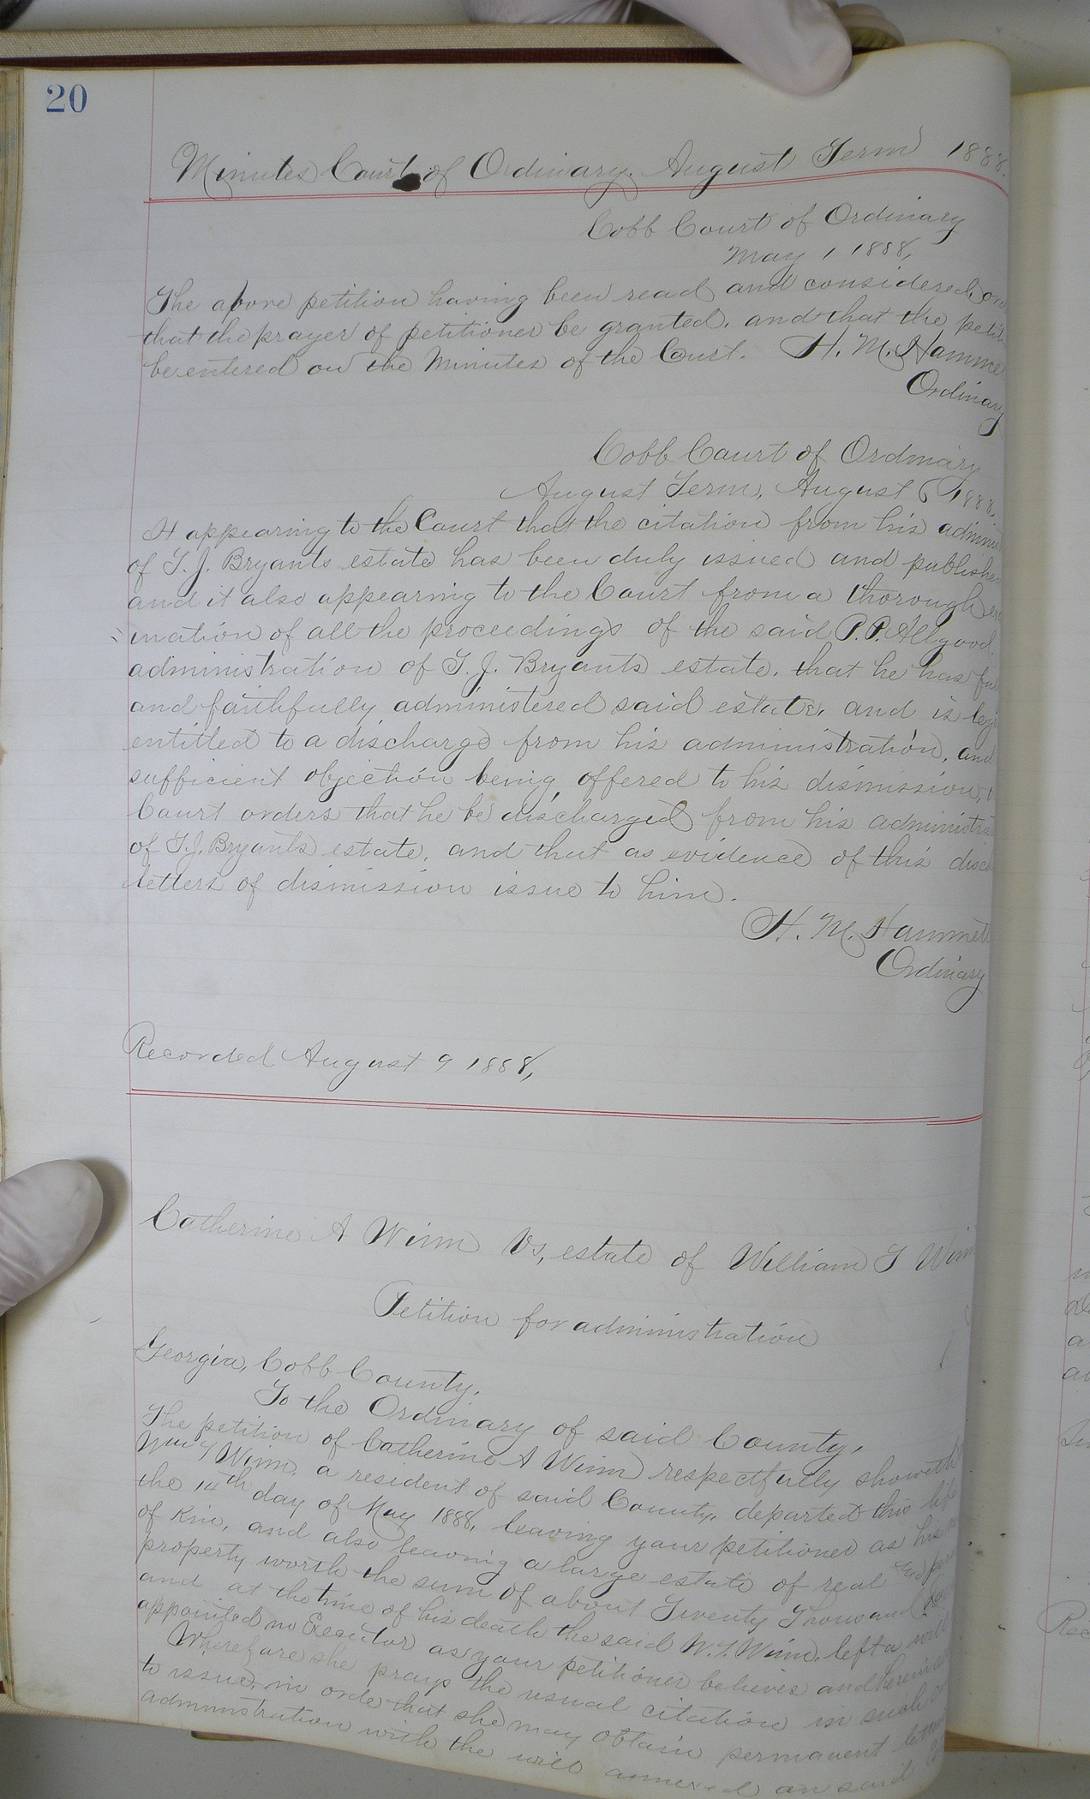 20
Minutes Court of Ordinary. August Term 1888.
Cobb Court of Ordinary
May 1 1888,
The above petition having been read and considered,
that the prayer of petitioner be granted. and that the
be entered on the Minutes of the Court. H. M. Hamme
Ordinary
Cobb Court of Ordinary
August Term, August 6 1888,
It appearing to the Court that the citation from his
of T. J. Bryants estate has been duly issued and publishe
and it also appearing to the Court from a thorough
ination of all the proceedings of the said P. P. Allgood
administration of T. J. Bryants estate. that he has
and faithfully administered said estate, and is
entitled to a discharge from his administration, and
sufficient objection being offered to his dismission,
Court orders that he be discharged from his administra
of T. J. Bryants estate, and that as evidence of this
letters of dismission issue to him.
H. M. Hammett
Ordinary
Recorded August 9 1888,
Catherine A Winn Vs, estate of William T Winn
Petition for administration
Georgia, Cobb County,
To the Ordinary of said County,
The petition of Catherine A Winn respectfully showeth
Winn, a resident of said County, departed this life
the 14th day of May 1888, leaving your petitioner as his
of Kin, and also leaving a large estate of real
property worth the sum of about Twenty Thousand
and at the time of his death the said W. T. Winn, left a will
appointed no Executor as your petitioner believes and therein
Wherefore she prays the usual citation in such
to issue, in orde that she may obtain permanent
administration with the will annexed on said